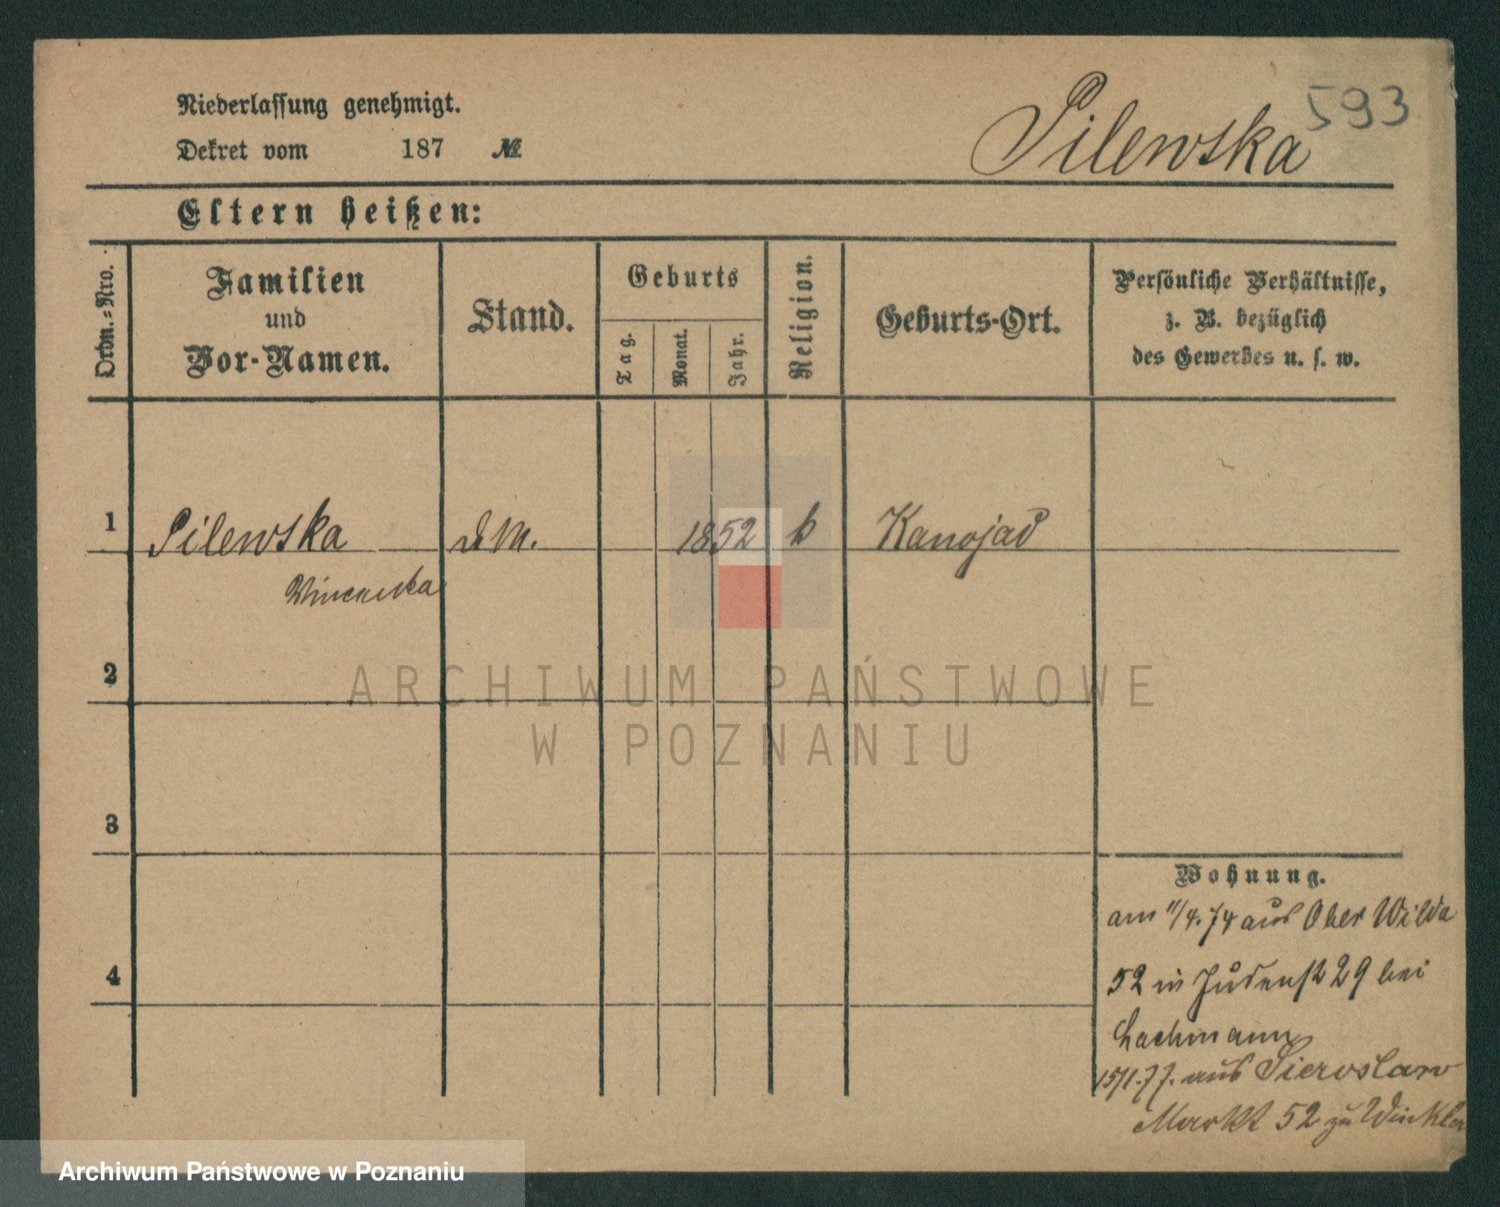 593
Niederlassung genehmigt.
Dekret vom 187 №
Pilewska
Eltern heißen:
Ordn.-Nro.
Familien und Vor-Namen.
Stand.
Geburts
Tag.
Monat.
Jahr.
Religion.
Geburts-Ort.
Persönliche Verhältnisse,
z. B. bezüglich
des Gewerbes u. s. w.
1 Pilewska d. M. 1852 k Kanojad
2
ARCHIWUM PAŃSTWOWE
W POZNANIU
3
Wohnung.
am 11/4.74 aus Ober Wilda
4
52 in Judenst 29 bei
Lachmann
15/1.77. aus Sieroslaw
Markt 52 zu Winkler
Archiwum Państwowe w Poznaniu